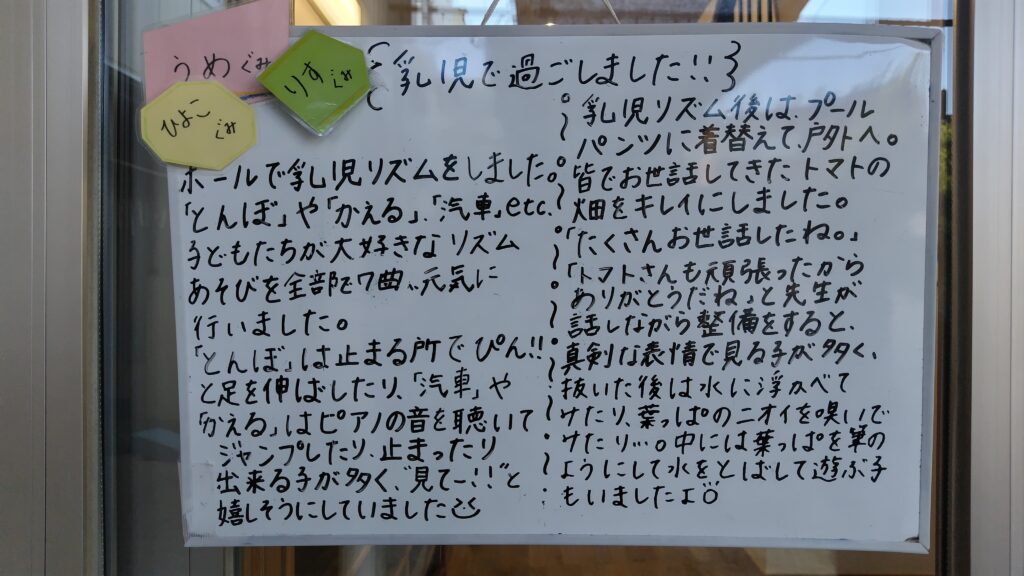 うめぐみ
りすぐみ
ひよこぐみ
{乳児で過ごしました!!}
ホールで乳児リズムをしました。
「とんぼ」や「かえる」、「汽車」etc.
子どもたちが大好きなリズム
あそびを全部で7曲、元気に
行いました。
「とんぼ」は止まる所でぴん!!
と足を伸ばしたり、「汽車」や
「かえる」はピアノの音を聴いて
ジャンプしたり、止まったり
出来る子が多く、"見てー!!"と
嬉しそうにしていました
乳児リズム後は、プール
パンツに着替えて、戸外へ。
皆でお世話してきたトマトの
畑をキレイにしました。
「たくさんお世話したね。」
「トマトさんも頑張ったから
ありがとうだね」と先生が
話しながら整備をすると、
真剣な表情で見る子が多く、
抜いた後は水に浮かべて
みたり、葉っぱのニオイを嗅いで
みたり…。中には葉っぱを筆の
ようにして水をとばして遊ぶ子
もいましたよ